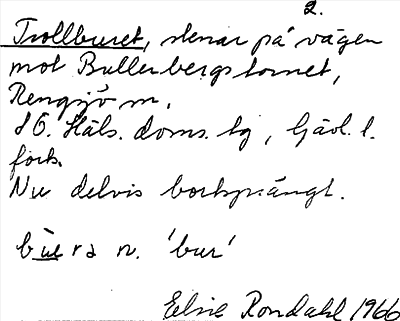 2.
Trollburet, stenar på vägen
mot Bullerbergstornet,
Rengsjö sn.
S O. Häls. doms. tg, Gävl. l.
forts.
Nu delvis bortsprängt.
bu̲ra n. 'bur'
Elsie Rondahl 1966